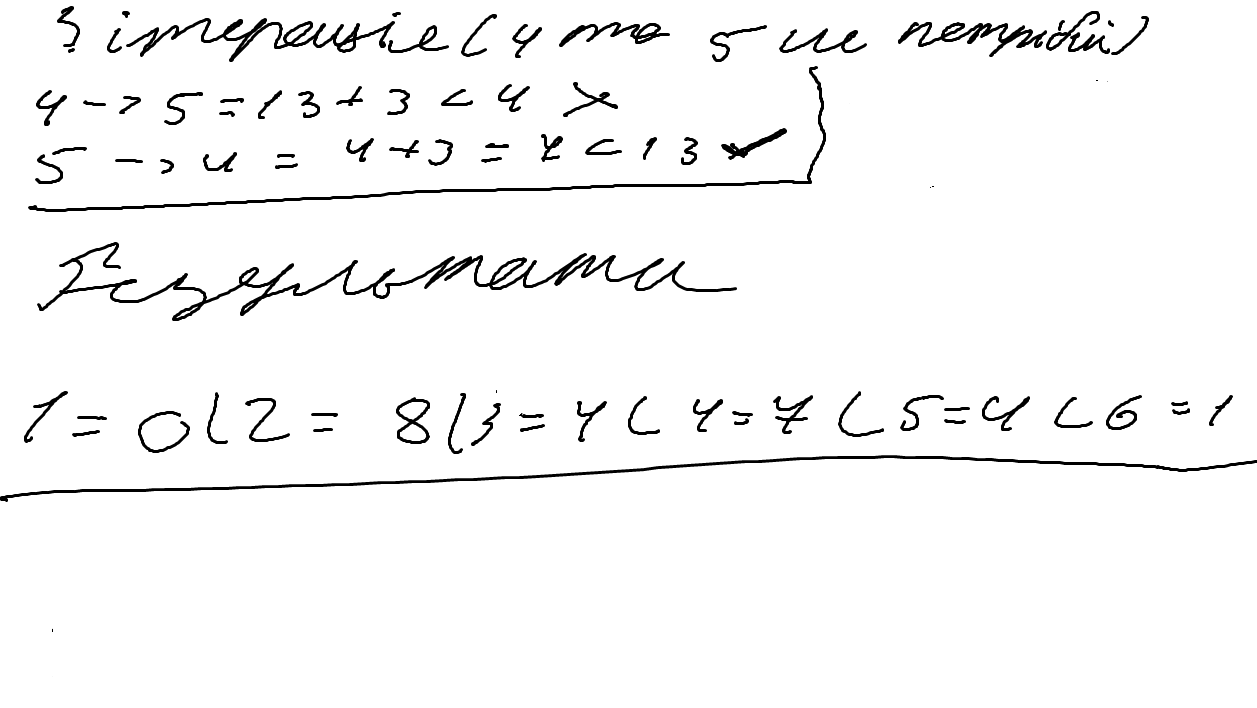 3 ітерація (4 та 5 не потрібні)
4 -> 5 = 13 + 3 < 4 ×
5 -> 4 = 4 + 3 = 7 < 13 ✓
Результати
1 = 0 ( 2 = 8 ( 3 = 4 ( 4 = 7 ( 5 = 4 ( 6 = 1